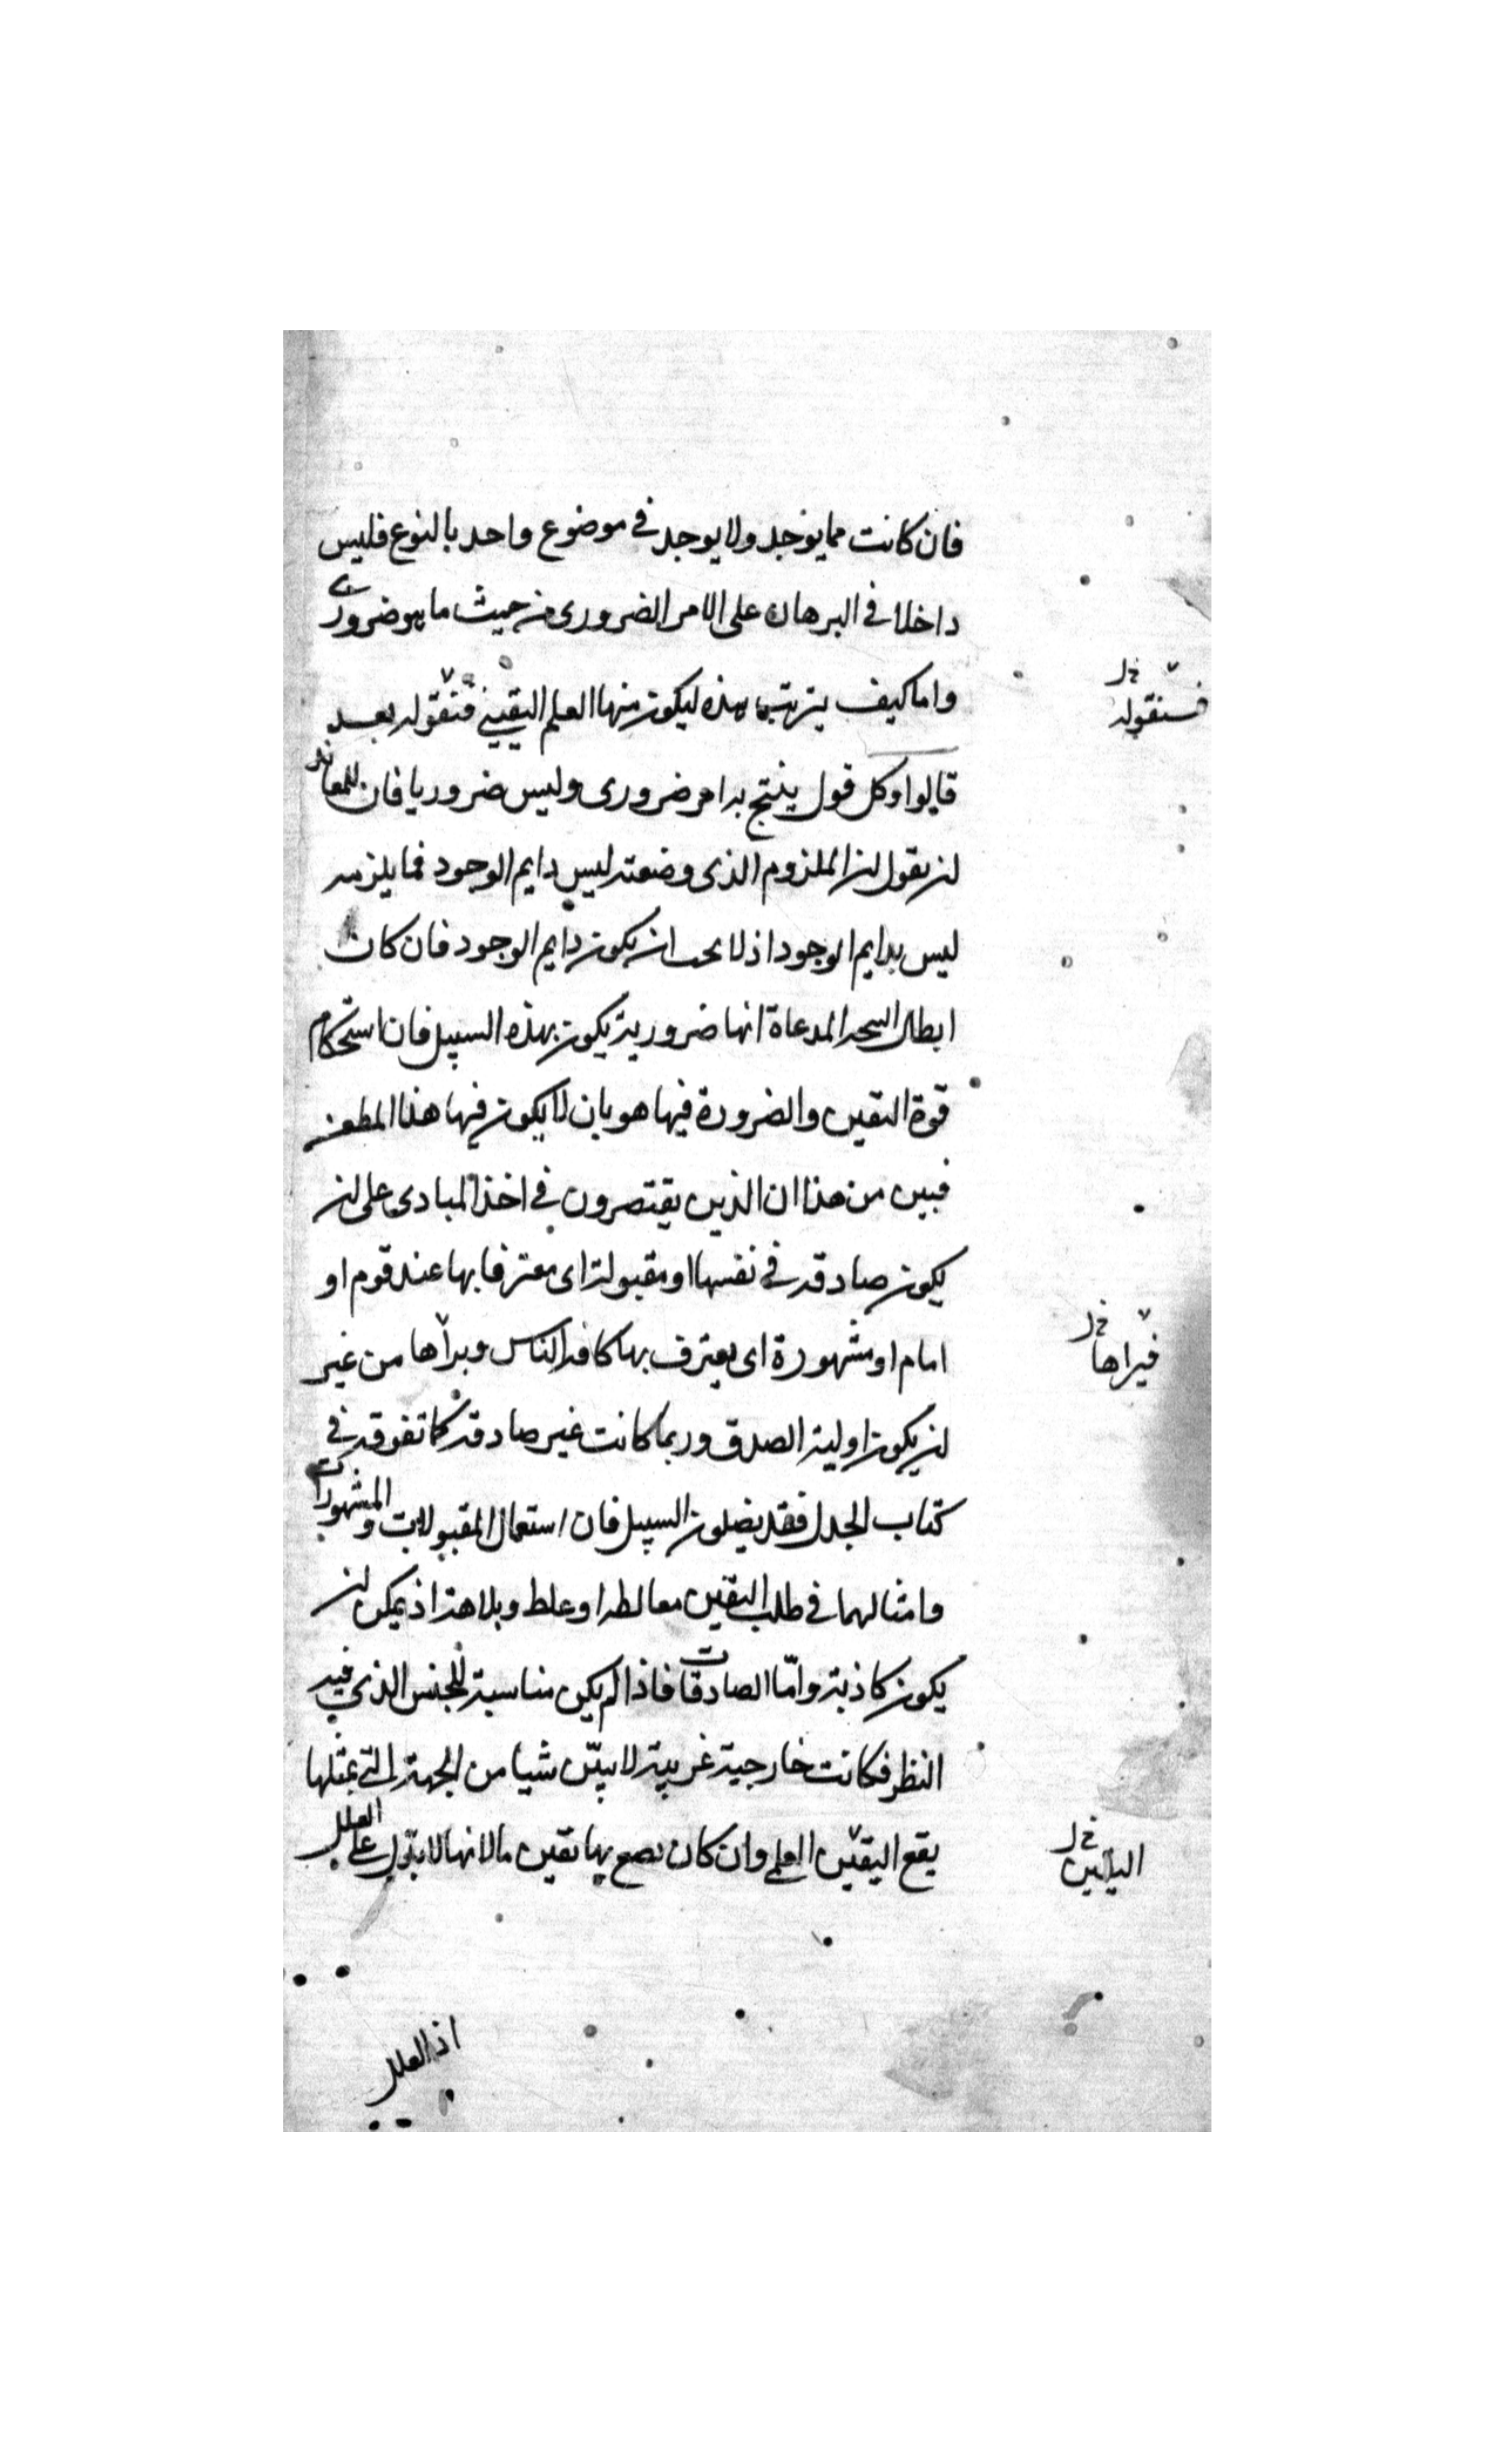 فان كانت مما يوجد ولا يوجد في موضوع واحد بالنوع فليس
داخلا في البرهان على الامر الضروري من حيث ما هو ضروري
واما كيف يترتب هذه ليكون منها العلم اليقيني فنقوله بعد
فسنقوله خ ل
قالوا وكل قول ينتج به امر ضروري وليس ضروريا فان للمعاند
ان يقول ان الملزوم الذي وضعته ليس دايم الوجود فما يلزمه
ليس بدايم الوجود اذ لا يجب ان يكون دايم الوجود فان كان
ابطال المدعاة انها ضرورية يكون بهذه السبيل فان استحكام
قوة اليقين والضرورة فيها هو بان لا يكون فيها هذا المطعن
فبين من هذا ان الذين يقتصرون في اخذ المبادي على ان
يكون صادقة في نفسها او مقبولة اى معترفا بها عند قوم او
امام او مشهورة اى يعترف بها كافة الناس وبراها من غير
فيراها خ ل
ان يكون اولية الصدق وربما كانت غير صادقة كما تفوقه في
كتاب الجدل فقد يضلون السبيل فان استعمال المقبولات والمشهورات
وامثالهما في طلب اليقين مغالطة او غلط وبلاهة اذ يمكن ان
يكون كاذبة وامّا الصادقات فاذا لم يكن مناسبة للجنس الذي فيه
النظر فكانت خارجية غريبة لا يبيّن شيا من الجهة التي بمثلها
يقع اليقين العلمي وان كان يصح بها يقين ما لانها لا يدل على العلل
خ ل
اذ العلل